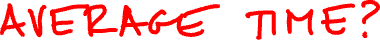 AVERAGE TIME?